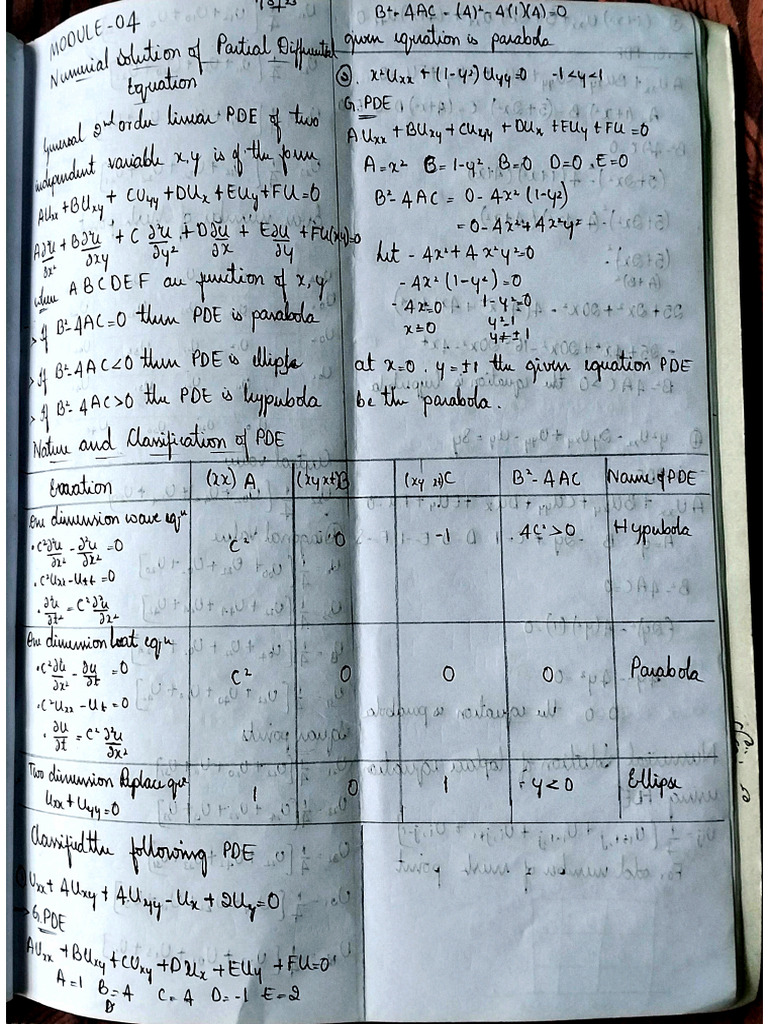 MODULE-04
Numerial solution of Partial Differential
Equation
General 2nd order linear PDE of two
independent variable x,y is of the form
AUxx + BUxy + CUyy + DUx + EUy + FU = 0
A∂²u/∂x² + B∂²u/∂xy + C ∂²u/∂y² + D∂u/∂x + E∂u/∂y + FU(x,y)=0
where A B C D E F are function of x, y
> If B²-4AC=0 then PDE is parabola
> If B²-4AC<0 then PDE is ellipse
> If B²-4AC>0 the PDE is hypubola
Nature and Classification of PDE
B²-4AC = (4)²-4(1)(4)=0
given equation is parabola
②. x²Uxx + (1-y²) Uyy=0 -1<y<1
G.PDE
AUxx + BUxy + CUxyy + DUx + EUy + FU = 0
A=x² C=1-y². B=0 D=0. E=0
B²-4AC = 0-4x²(1-y²)
=0-4x²+4x²y²
Let -4x²+4x²y²=0
-4x²(1-y²)=0
-4x²=0 1-y²=0
x=0 y²=1
y=±1
at x=0. y=±1 the given equation PDE
be the parabola.
Equation (xx) A (xy xt)B (xy xt)C B²-4AC Name of PDE
One dimension wave equⁿ
• C²∂²u/∂x² - ∂²u/∂x² =0 C² 0 -1 4C²>0 Hypubola
• C²Uxx-Utt=0
• ∂²u/∂t² = C²∂²u/∂x²
One dimension heat equⁿ
• C²∂²u/∂x² - ∂u/∂t =0 C² 0 0 0 Parabola
• C²Uxx - Ut=0
• ∂u/∂t = C²∂²u/∂x²
Two dimension Replace quⁿ
Uxx + Uyy=0 1 0 1 -4<0 Ellipse
Classified the following PDE
① Uxx + 4Uxy + 4Uxyy - Ux + 2Uy=0
→ G.PDE
AUxx + BUxy + CUxy + DUx + EUy + FU=0
A=1 B=4 C=4 D=-1 E=2